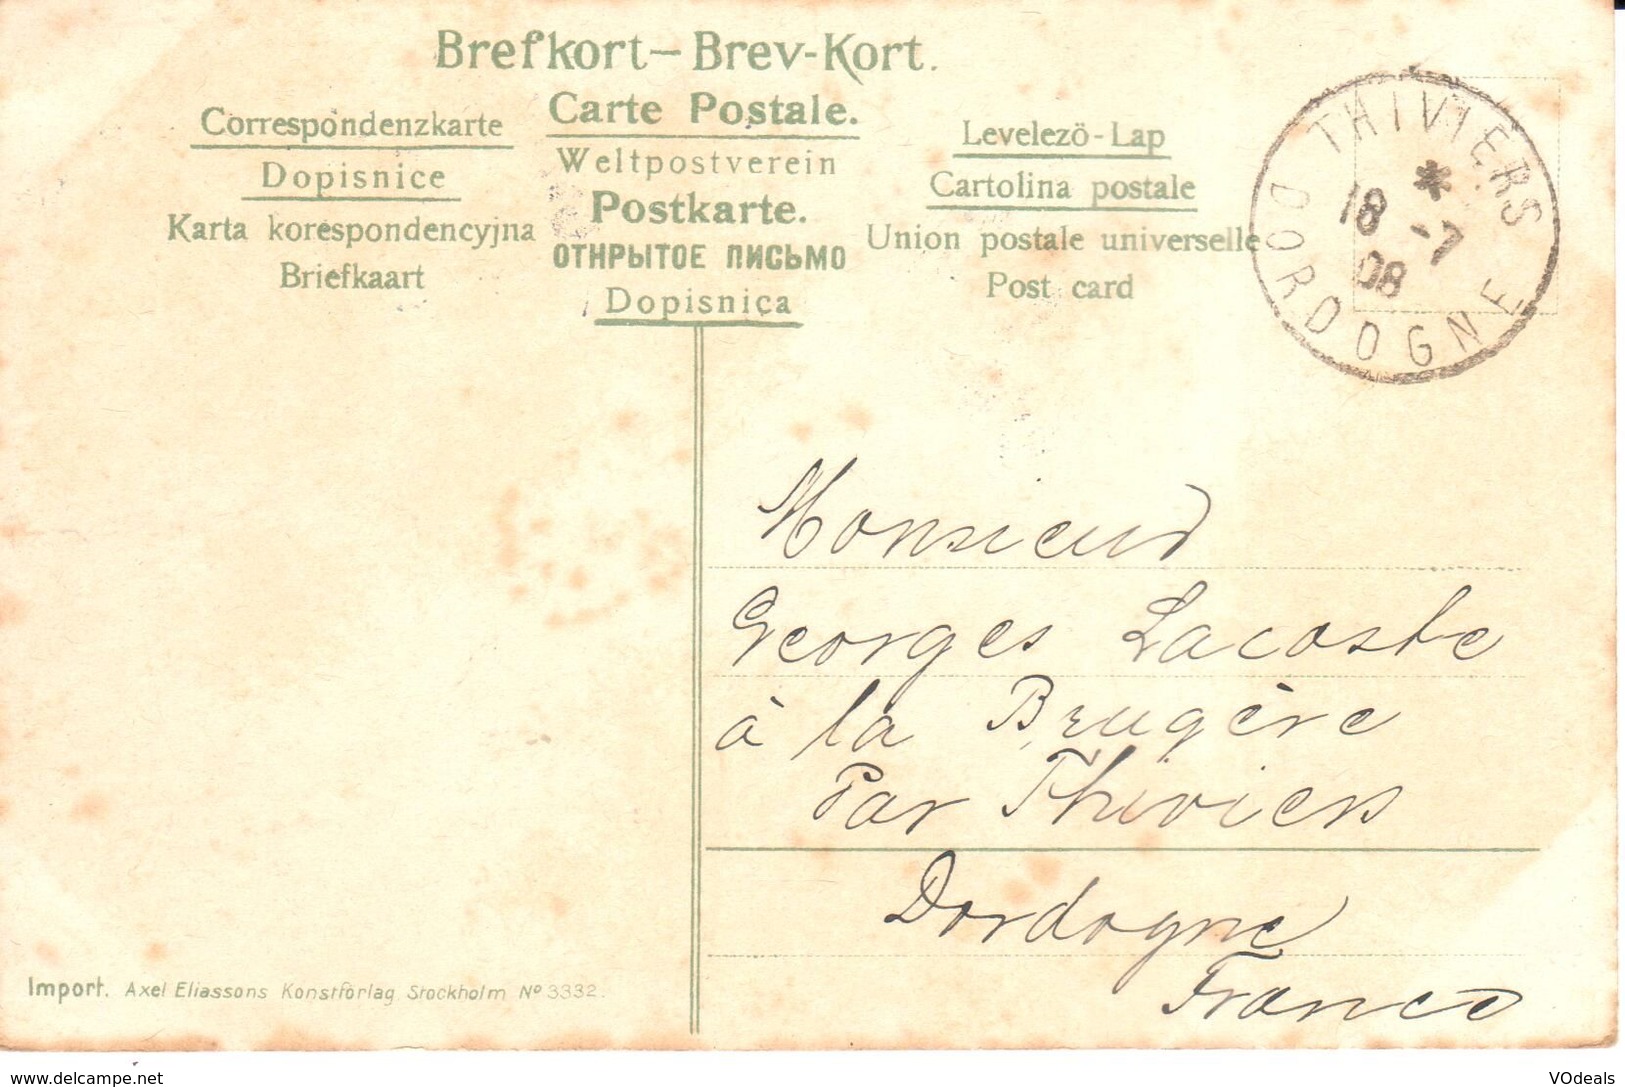 Brefkort — Brev-Kort.
Carte Postale.
Correspondenzkarte
Weltpostverein
Levelezö-Lap
Dopisnice
Postkarte.
Cartolina postale
Karta korespondencyjna
ОТНРЫТОЕ ПИСЬМО
Union postale universelle
Briefkaart
Dopisnica
Post card
THIVIERS
*
18 -7
08
DORDOGNE
Monsieur
Georges Lacoste
à la Brugère
Par Thiviers
Dordogne
France
Import. Axel Eliassons Konstförlag Stockholm No 3332.
www.delcampe.net
VOdeals